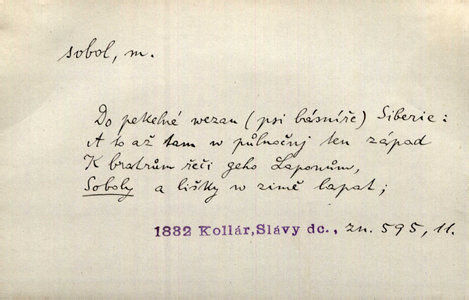 sobol, m.
Do pekelné wezau (psi básníře) Siberie:
A to až tam w půlnočnj ten západ
K bratrům řeči geho Laponům,
Soboly a lišky w zimě lapat;
1832 Kollár, Slávy dc., zn. 595, 11.